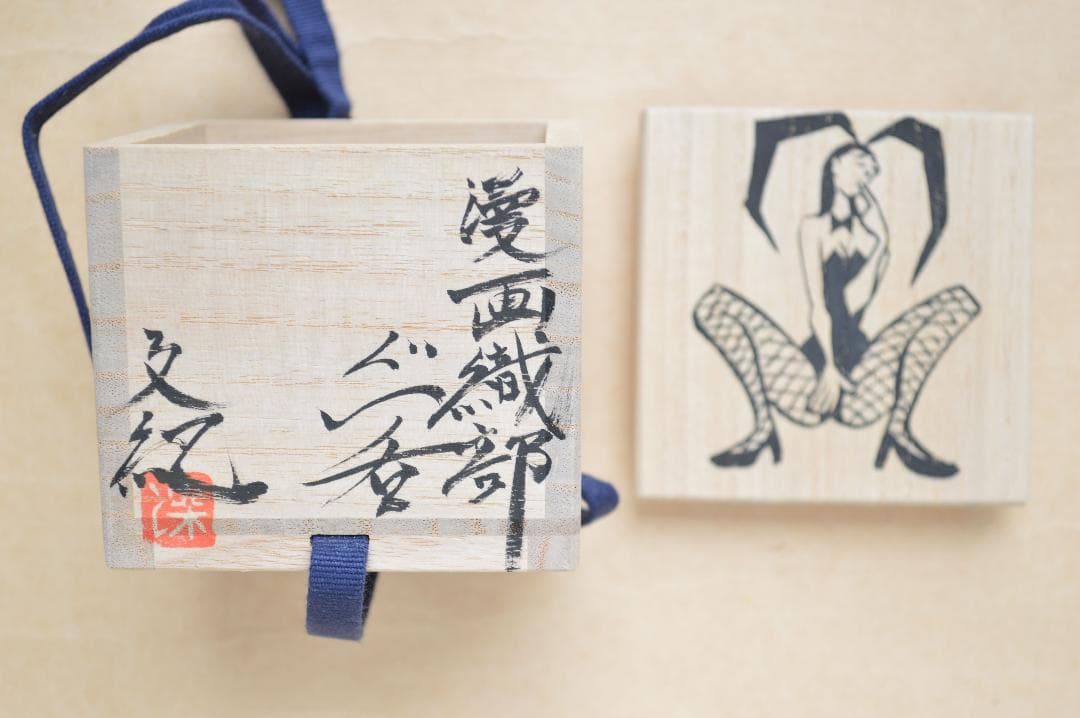 漫画織部
ぐい呑
文紀
深